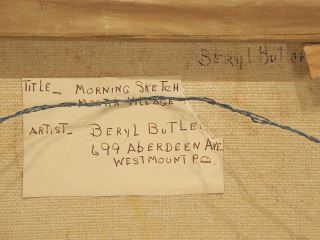 Beryl Butler
TITLE_ MORNING SKETCH
VILLAGE
ARTIST_ BERYL BUTLE
699 ABERDEEN AVE
WESTMOUNT P.Q.